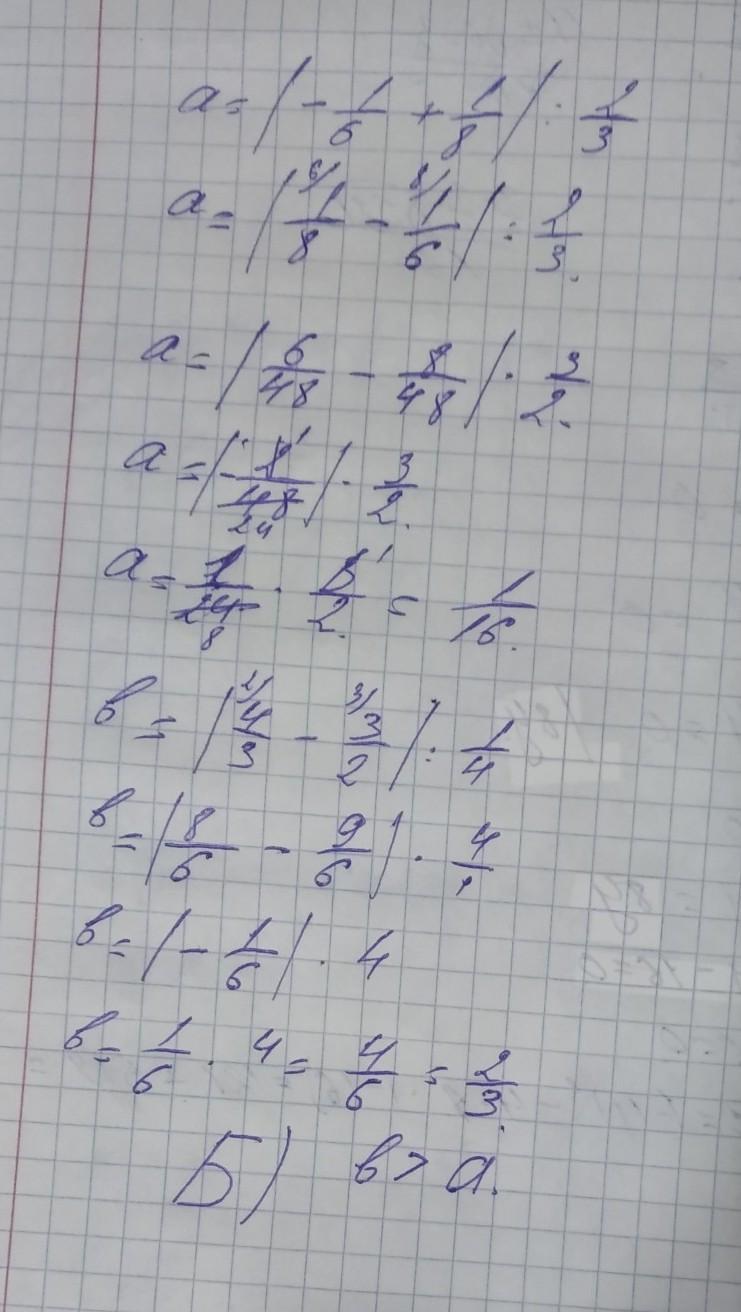 a = |- 1/6 + 1/8| : 2/3
a = |6/ 1/8 - 8/ 1/6| : 2/3.
a = |6/48 - 8/48| · 3/2.
a = |- 1/24| · 3/2.
a = 1/24 8 · 3/2. 1 = 1/16.
в = |2/ 4/3 - 3/ 3/2| : 1/4
в = |8/6 - 9/6| · 4/1
в = |- 1/6| · 4
в = 1/6 · 4 = 4/6 = 2/3.
Б) в > a.